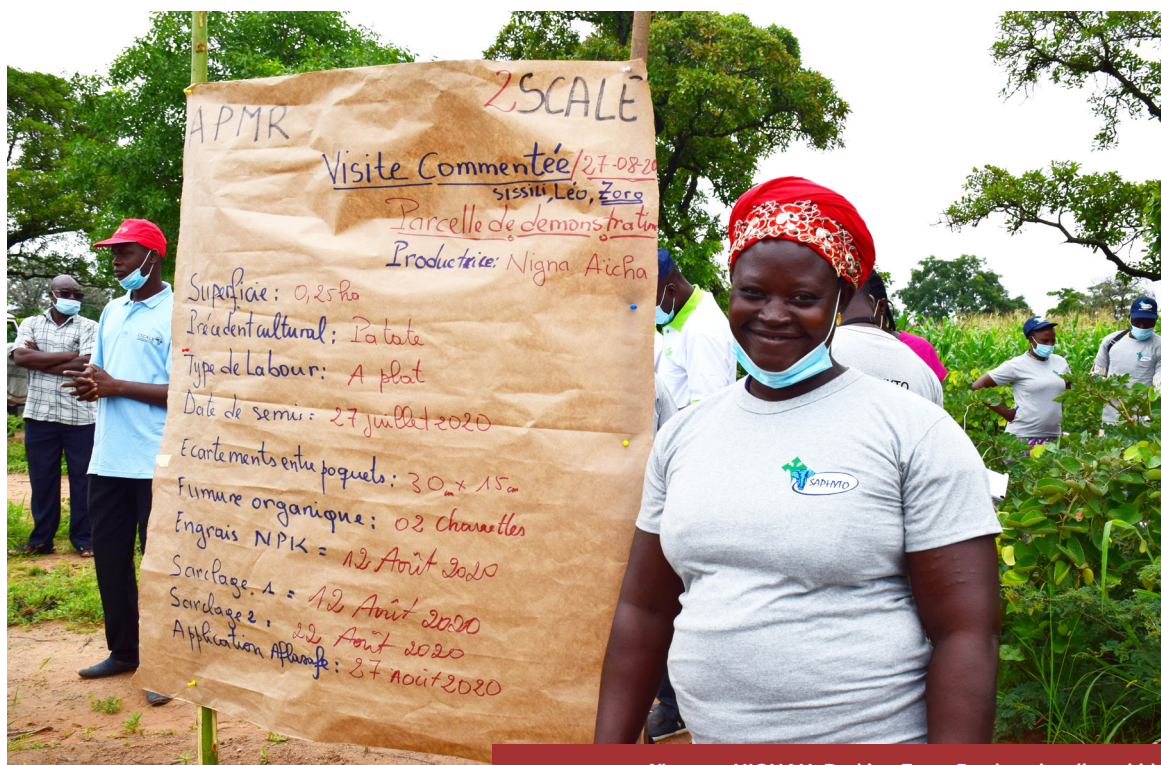 APMR
2SCALE
Visite Commentée/27-08-20
Sissili, Léo, Zoro
Parcelle de demonstration
Productrice: Nigna Aïcha
Superficie: 0,25ha
Précédent cultural: Patate
Type de Labour: A plat
Date de semis: 27 juillet 2020
Ecartements entre poquets: 30cm x 15cm
Fumure organique: 02 Charrettes
Engrais NPK = 12 Août 2020
Sarclage 1 = 12 Août 2020
Sarclage 2: 22 Août 2020
Application Aflasafe: 27 Août 2020
SAPHYTO